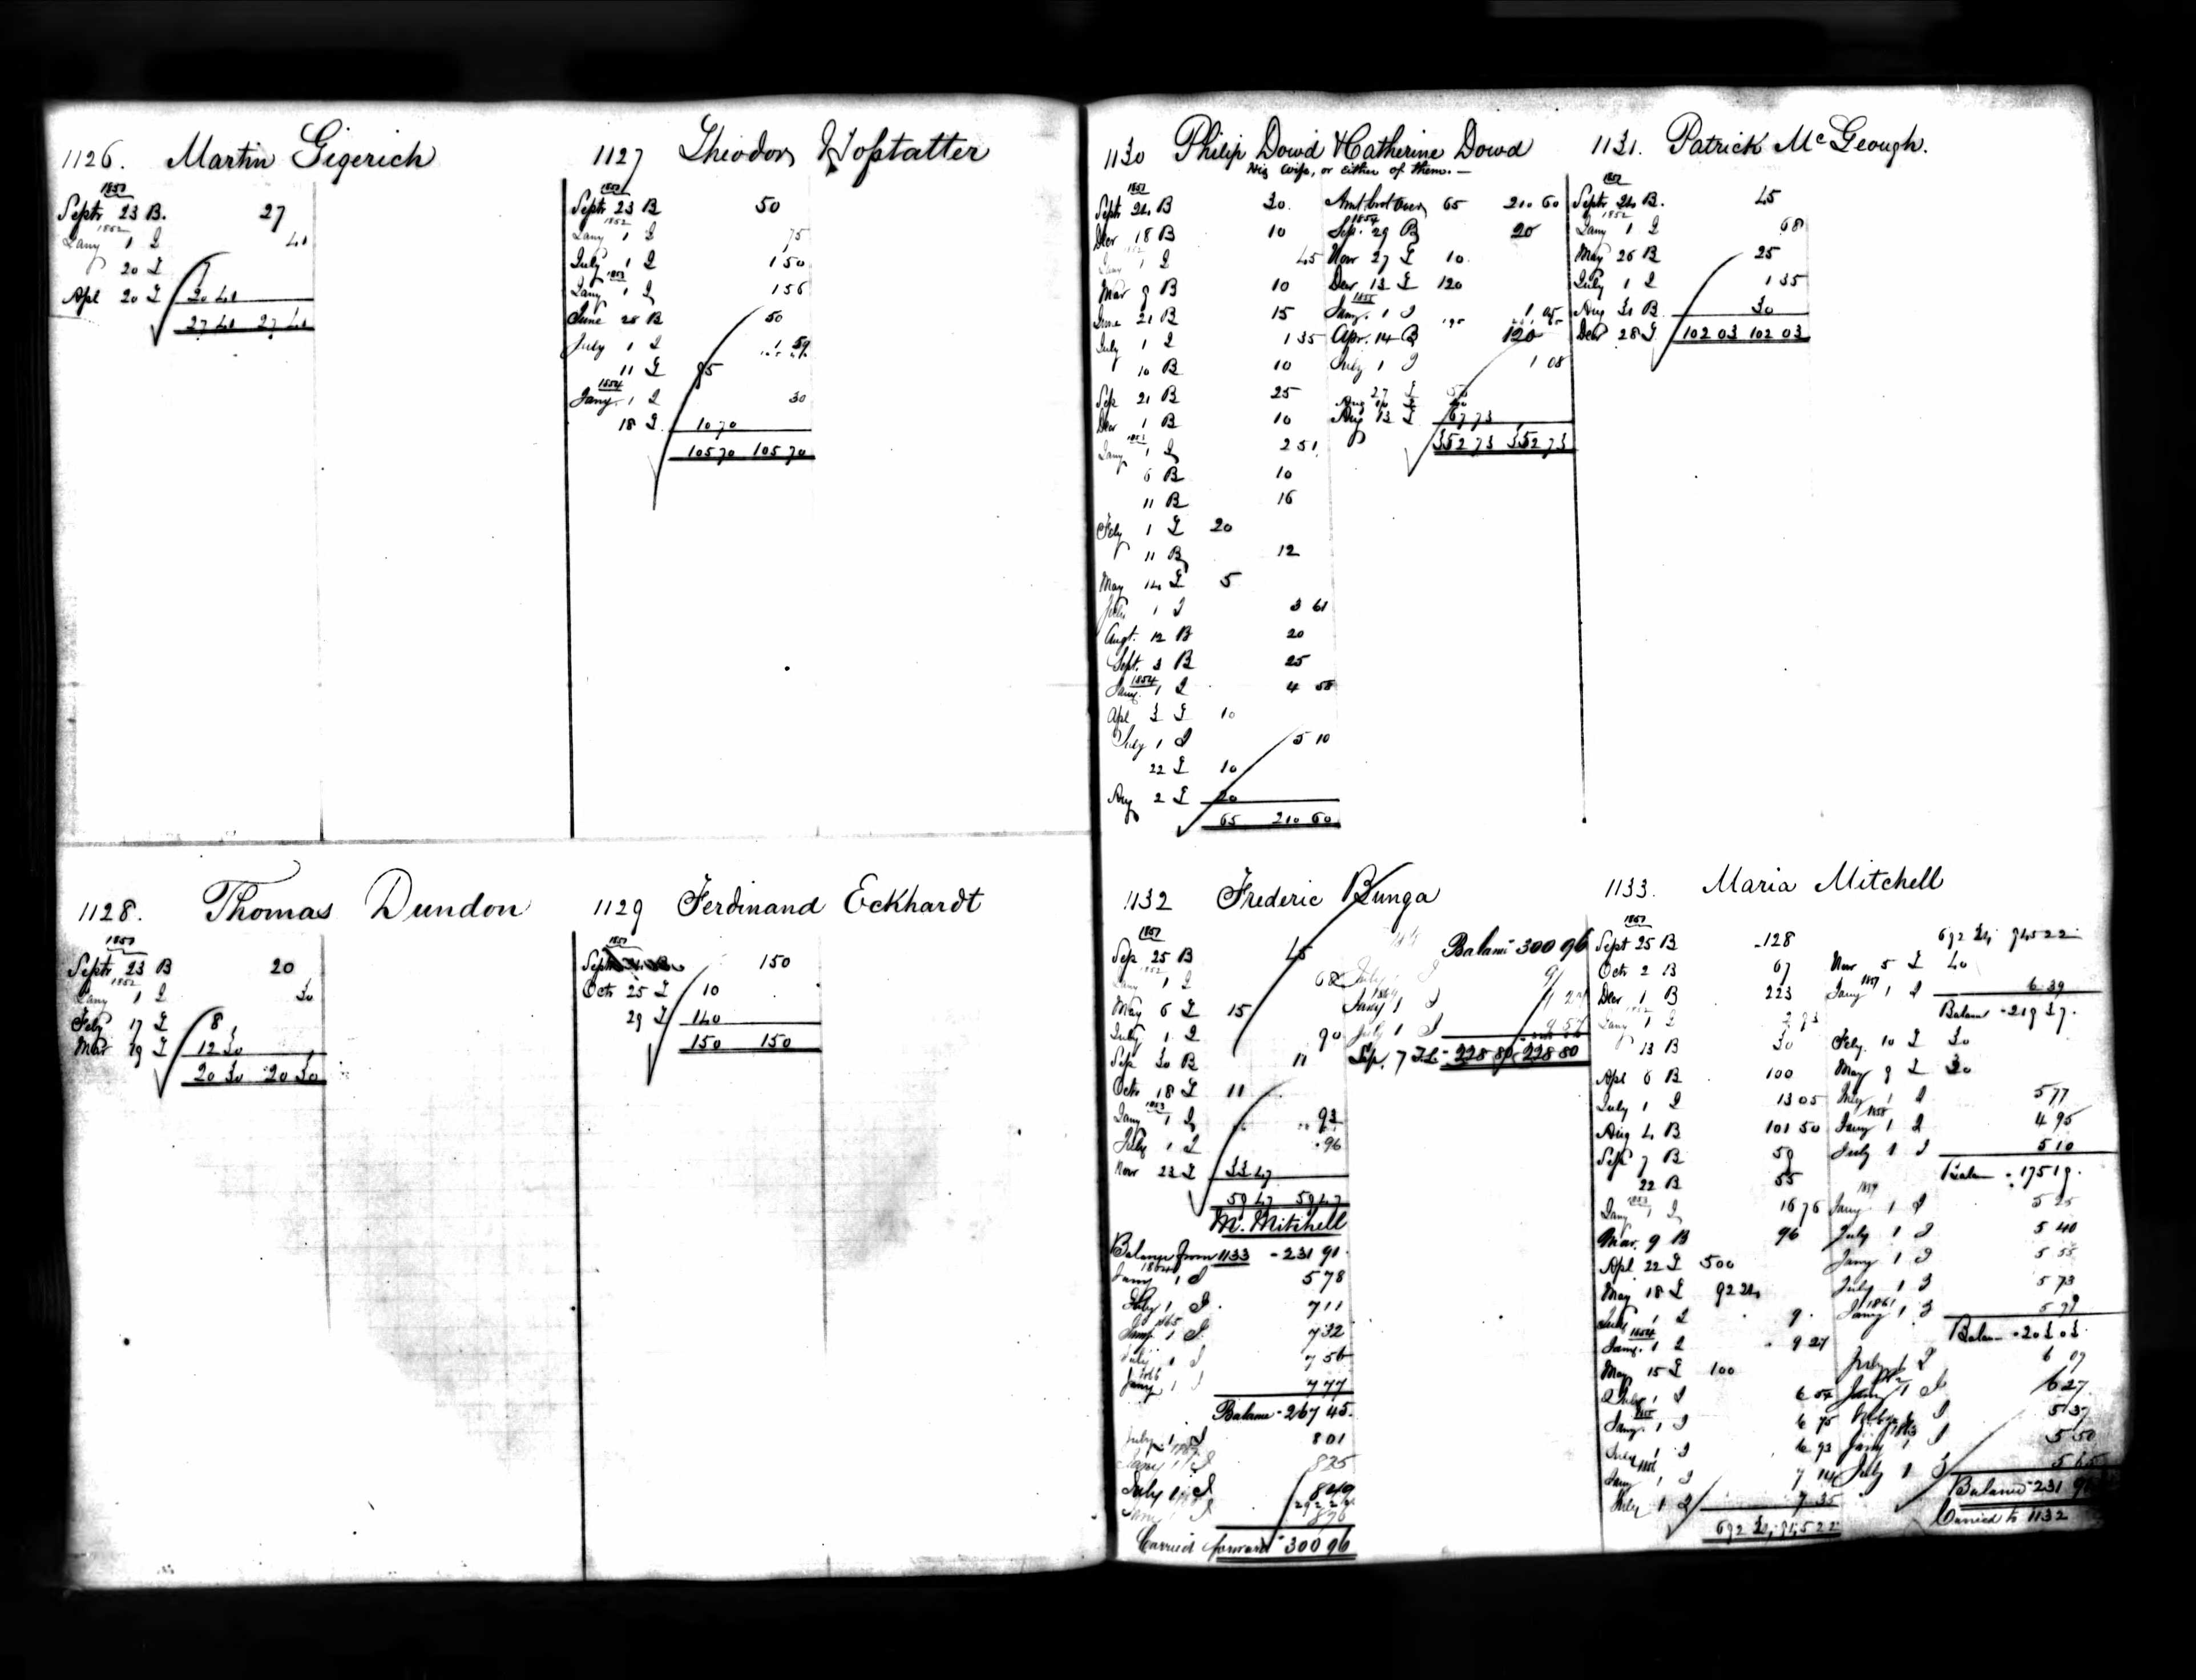 1126. Martin Gigerich
1851
Septr 23 B. 27
1852
Jany 1 I 41
20 I 7
Apl 20 I 20 41
27 41 27 41
1127 Theodor Hofstatter
1851
Septr 23 B 50
1852
Jany 1 I 75
July 1 I 1 50
1853
Jany 1 I 1 56
June 28 B 50
July 1 I 1 59
11 I 95
1854
Jany. 1 I 30
18 I 10 70
105 70 105 70
1128. Thomas Dundon
1851
Septr 23 B 20
1852
Jany 1 I 30
Feby 17 I 8
Mar 19 I 12 30
20 30 20 30
1129 Ferdinand Eckhardt
1851
Septr 150
Octr 25 I 10
29 I 140
150 150
1130 Philip Dowd & Catherine Dowd
His wife, or either of them. —
1851
Septr 24 B 30
Decr 18 B 10
Jany 1 I 45
Mar 9 B 10
June 21 B 15
July 1 I 1 35
10 B 10
Sep 21 B 25
Decr 1 B 10
1853
Jany 1 I 2 51
6 B 10
11 B 16
Feby 1 I 20
11 B 12
May 14 I 5
July 1 I 3 61
Augt. 12 B 20
Sept. 3 B 25
1854
Jany. 1 I 4 58
Apl 3 I 10
July 1 I 5 10
22 I 10
Aug 2 I 20
65 210 60
Amt brot over 65 210 60
1854
Sep. 29 B 20
Novr 27 I 10
Decr 13 I 120
1855
Jany. 1 I 1 05
Apr. 14 B 120
July 1 I 1 08
27 I 50
Aug 13 I 67 73
352 73 352 73
1131. Patrick McGeough.
1851
Septr 24 B. 45
1852
Jany 1 I 68
May 26 B 25
July 1 I 1 35
Aug 31 B 30
Decr 28 I 102 03 102 03
1132 Frederic Bunga
1851
Sep 25 B 45
1852
Jany 1 I 68
May 6 I 15
July 1 I 90
Sep 30 B 11
Octr 18 I 11
1853
Jany 1 I 93
July 1 I 96
Novr 23 I 33 47
59 47 59 47
M. Mitchell
Balance from 1133 - 231 91
1864
Jany 1 I 5 78
July 1 I 7 11
1865
Jany 1 I 7 32
July 1 I 7 56
1866
Jany 1 I 7 77
Balance - 267 45.
July 1 I 8 01
Jany 1 I 8 25
July 1 I 8 49
Jany 1 I 8 76
Carried forward 300 96
Balance 300 96
July I
Jany 1 I
July 1 I
Sep. 7 I. - 228 80 - 228 80
1133. Maria Mitchell
1851
Sept 25 B 128
Octr 2 B 67
Decr 1 B 223
Jany 1 I
13 B 30
Apl 6 B 100
July 1 I 13 05
Aug 4 B 101 50
Sept 7 B 59
22 B 55
1853
Jany 1 I 16 76
Mar. 9 B 96
Apl 22 I 500
May 18 I 92 24
July 1 I 9
1854
Jany. 1 I 9 27
May 15 I 100
July 1 I 6 54
1855
Jany. 1 I 6 75
July 1 I 6 93
1856
Jany 1 I 7 14
July 1 I 7 35
692 24 915 22
692 24 915 22
Novr 5 I 40
1857
Jany 1 I 6 39
Balance - 219 37.
Feby. 10 I 30
May 9 I 30
July 1 I 5 77
1858
Jany 1 I 4 95
July 1 I 5 10
Balan - 175 19.
1859
Jany 1 I 5 25
July 1 I 5 40
Jany 1 I 5 55
July 1 I 5 73
1861
Jany 1 I
Balan - 203 03.
July 1 I 6 09
Jany 1 I 6 27
July 1 I 5 37
1863
Jany 1 I 5 50
July 1 I 5 65
Balance 231 91
Carried to 1132